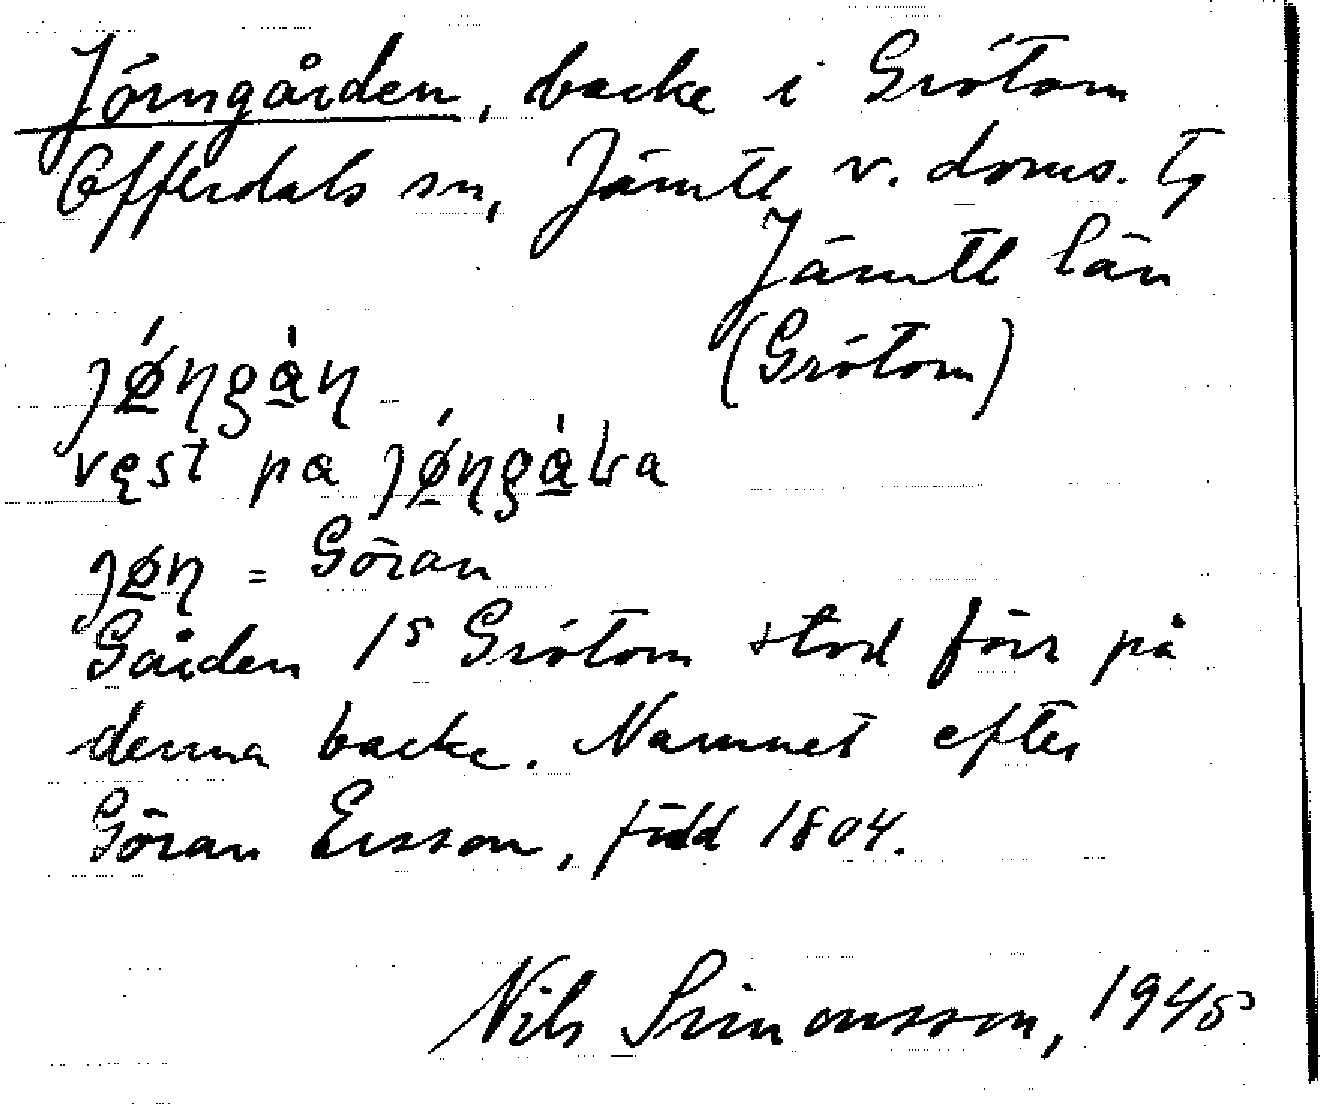 Jörngården, backe i Grötom
Offerdals sn, Jämtl v. doms. tg
Jämtl län
(Grötom)
jǿngàn
vęst pa jǿngàɽa
jøn = Göran
Gården 1⁵ Grötom stod förr på
denna backe. Namnet efter
Göran Ersson, född 1804.
Nils Simonsson, 1945